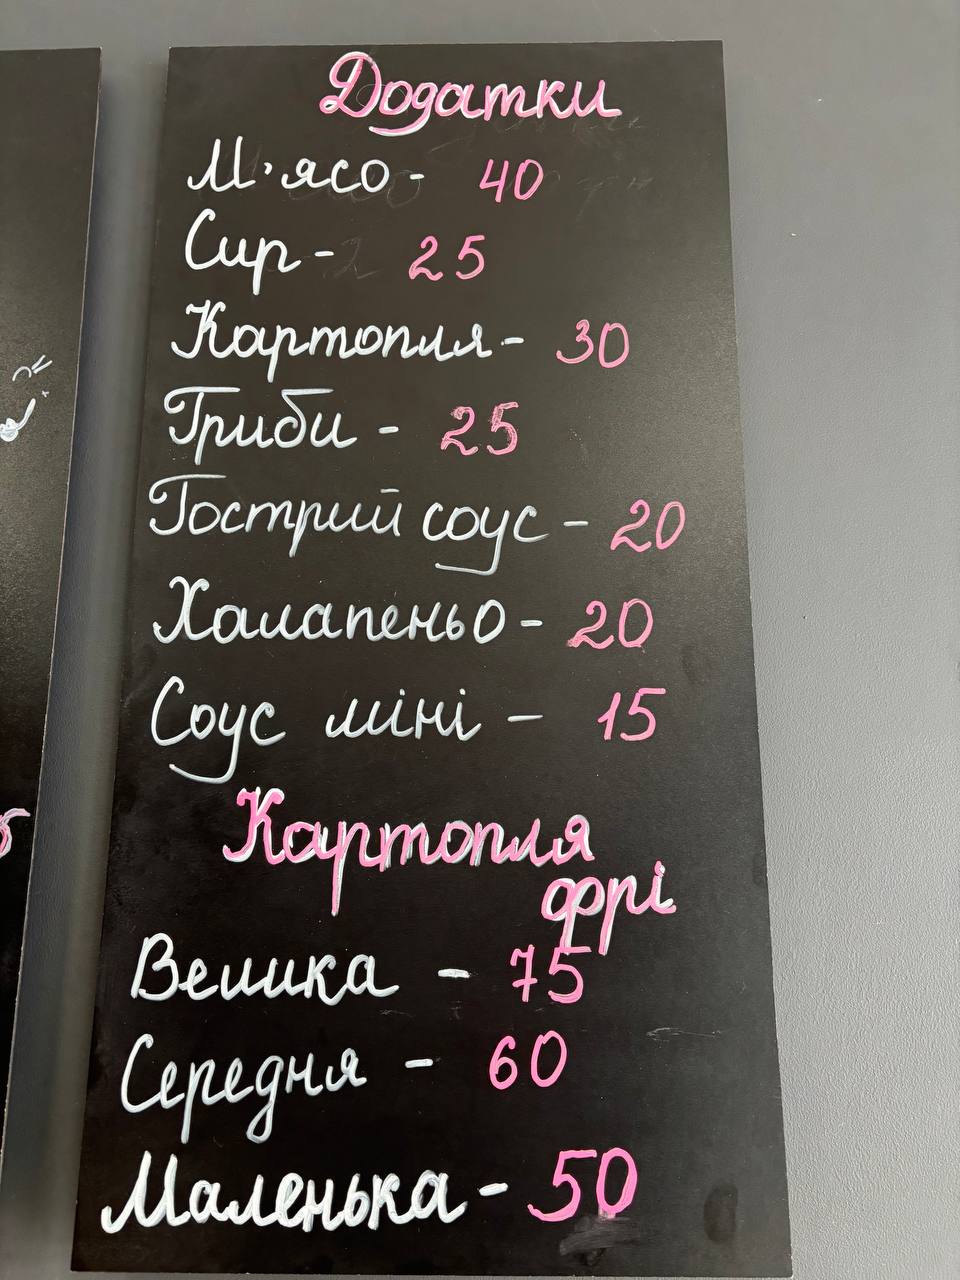 Додатки
М'ясо - 40
Сир - 25
Картопля - 30
Гриби - 25
Гострий соус - 20
Халапеньо - 20
Соус міні - 15
Картопля
фрі
Велика - 75
Середня - 60
Маленька - 50